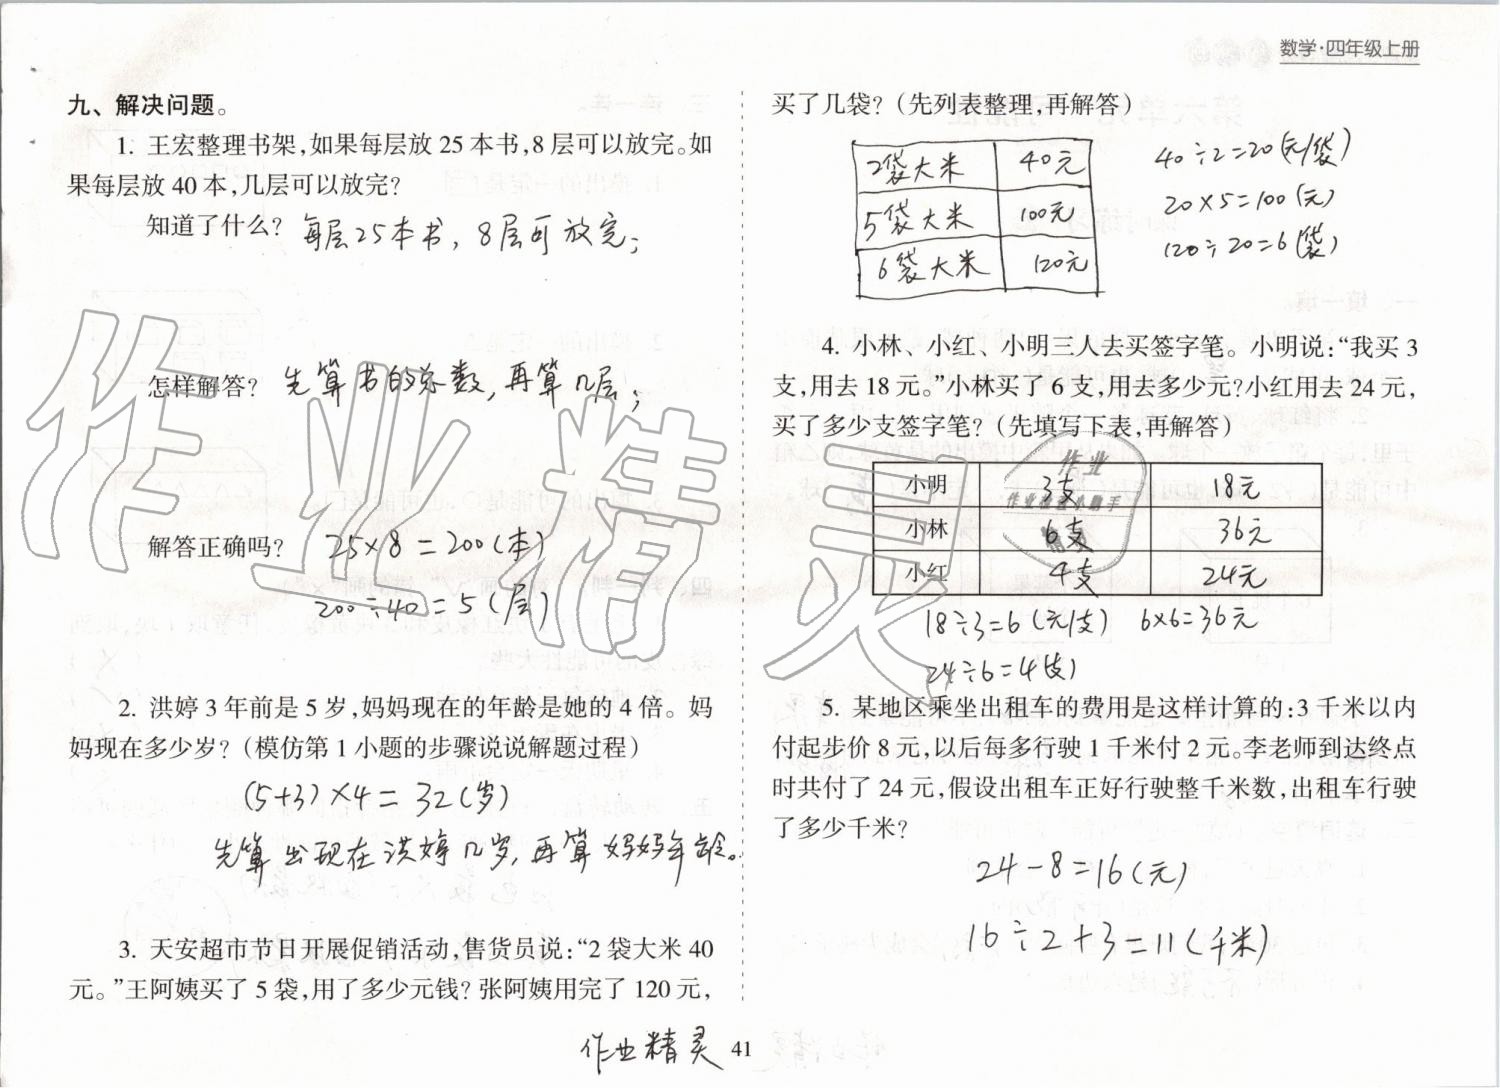 数学·四年级上册
九、解决问题。
1. 王宏整理书架,如果每层放 25 本书,8 层可以放完。如
果每层放 40 本,几层可以放完?
知道了什么? 每层25本书, 8层可放完;
怎样解答? 先算书的总数, 再算几层;
解答正确吗? 25×8=200(本)
200÷40=5(层)
2. 洪婷 3 年前是 5 岁,妈妈现在的年龄是她的 4 倍。妈
妈现在多少岁?(模仿第 1 小题的步骤说说解题过程)
(5+3)×4=32(岁)
先算出现在洪婷几岁, 再算妈妈年龄。
3. 天安超市节日开展促销活动,售货员说:“2 袋大米 40
元。”王阿姨买了 5 袋,用了多少元钱? 张阿姨用完了 120 元,
买了几袋?(先列表整理,再解答)
2袋大米 40元
5袋大米 100元
6袋大米 120元
40÷2=20(元/袋)
20×5=100(元)
120÷20=6(袋)
4. 小林、小红、小明三人去买签字笔。小明说:“我买 3
支,用去 18 元。”小林买了 6 支,用去多少元?小红用去 24 元,
买了多少支签字笔?(先填写下表,再解答)
小明 3支 18元
小林 6支 36元
小红 4支 24元
18÷3=6(元/支) 6×6=36元
24÷6=4(支)
5. 某地区乘坐出租车的费用是这样计算的:3 千米以内
付起步价 8 元,以后每多行驶 1 千米付 2 元。李老师到达终点
时共付了 24 元,假设出租车正好行驶整千米数,出租车行驶
了多少千米?
24-8=16(元)
16÷2+3=11(千米)
作业精灵
作业
作业检查小助手
作业精灵 41